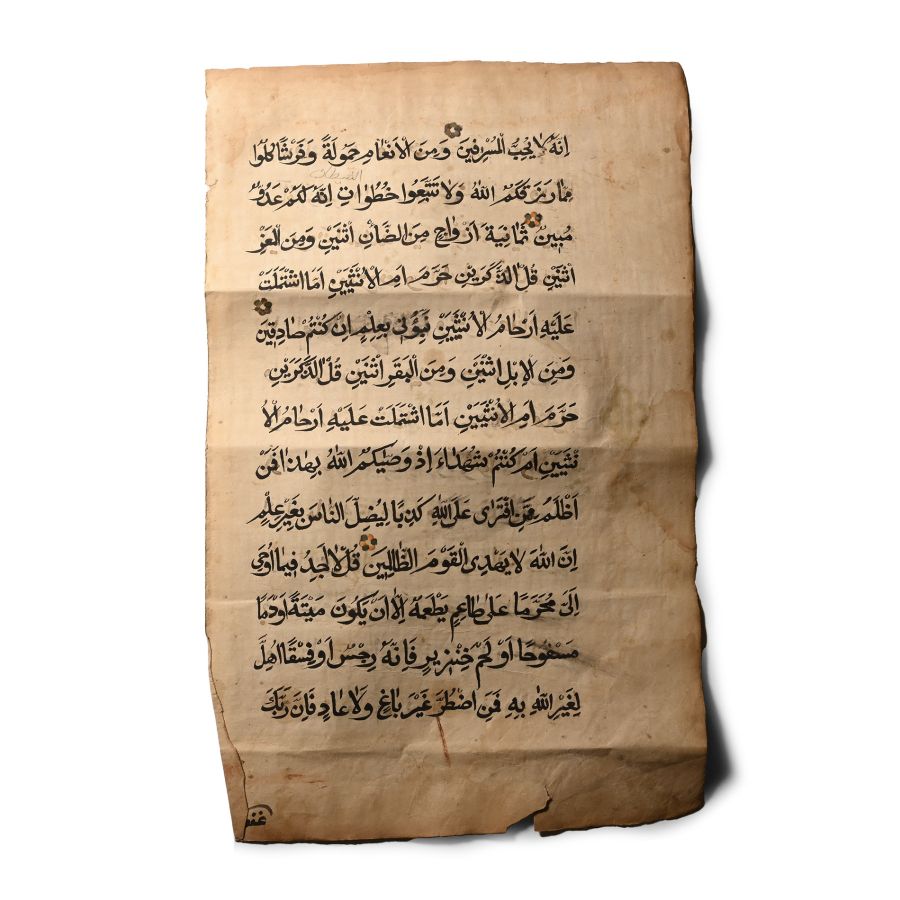 اِنَّهُ لَا يُحِبُّ الْمُسْرِفِينَ وَمِنَ الْاَنْعَامِ حَمُولَةً وَفَرْشًا كُلُوا
الشيطان
مِمَّا رَزَقَكُمُ اللّٰهُ وَلَا تَتَّبِعُوا خُطُوَاتِ اِنَّهُ لَكُمْ عَدُوٌّ
مُبِينٌ ثَمَانِيَةَ اَزْوَاجٍ مِنَ الضَّاْنِ اثْنَيْنِ وَمِنَ الْمَعْزِ
اثْنَيْنِ قُلْ الذَّكَرَيْنِ حَرَّمَ اَمِ الْاُنْثَيَيْنِ اَمَّا اشْتَمَلَتْ
عَلَيْهِ اَرْحَامُ الْاُنْثَيَيْنِ نَبِّؤُنِي بِعِلْمٍ اِنْ كُنْتُمْ صَادِقِينَ
وَمِنَ الْاِبِلِ اثْنَيْنِ وَمِنَ الْبَقَرِ اثْنَيْنِ قُلْ الذَّكَرَيْنِ
حَرَّمَ اَمِ الْاُنْثَيَيْنِ اَمَّا اشْتَمَلَتْ عَلَيْهِ اَرْحَامُ الْاُ
نْثَيَيْنِ اَمْ كُنْتُمْ شُهَدَاءَ اِذْ وَصّٰيكُمُ اللّٰهُ بِهٰذَا فَمَنْ
اَظْلَمُ مِمَّنِ افْتَرٰى عَلَى اللّٰهِ كَذِبًا لِيُضِلَّ النَّاسَ بِغَيْرِ عِلْمٍ
اِنَّ اللّٰهَ لَا يَهْدِي الْقَوْمَ الظَّالِمِينَ قُلْ لَا اَجِدُ فِيمَا اُوحِيَ
اِلَيَّ مُحَرَّمًا عَلٰى طَاعِمٍ يَطْعَمُهُ اِلَّا اَنْ يَكُونَ مَيْتَةً اَوْ دَمًا
مَسْفُوحًا اَوْ لَحْمَ خِنْزِيرٍ فَاِنَّهُ رِجْسٌ اَوْ فِسْقًا اُهِلَّ
لِغَيْرِ اللّٰهِ بِهِ فَمَنِ اضْطُرَّ غَيْرَ بَاغٍ وَلَا عَادٍ فَاِنَّ رَبَّكَ